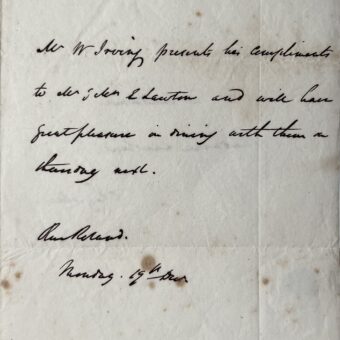 Mr W Irving presents his compliments
to Mr & Mrs Lawton and will have
great pleasure in dining with them on
thursday next.
Monday. 19th Decr